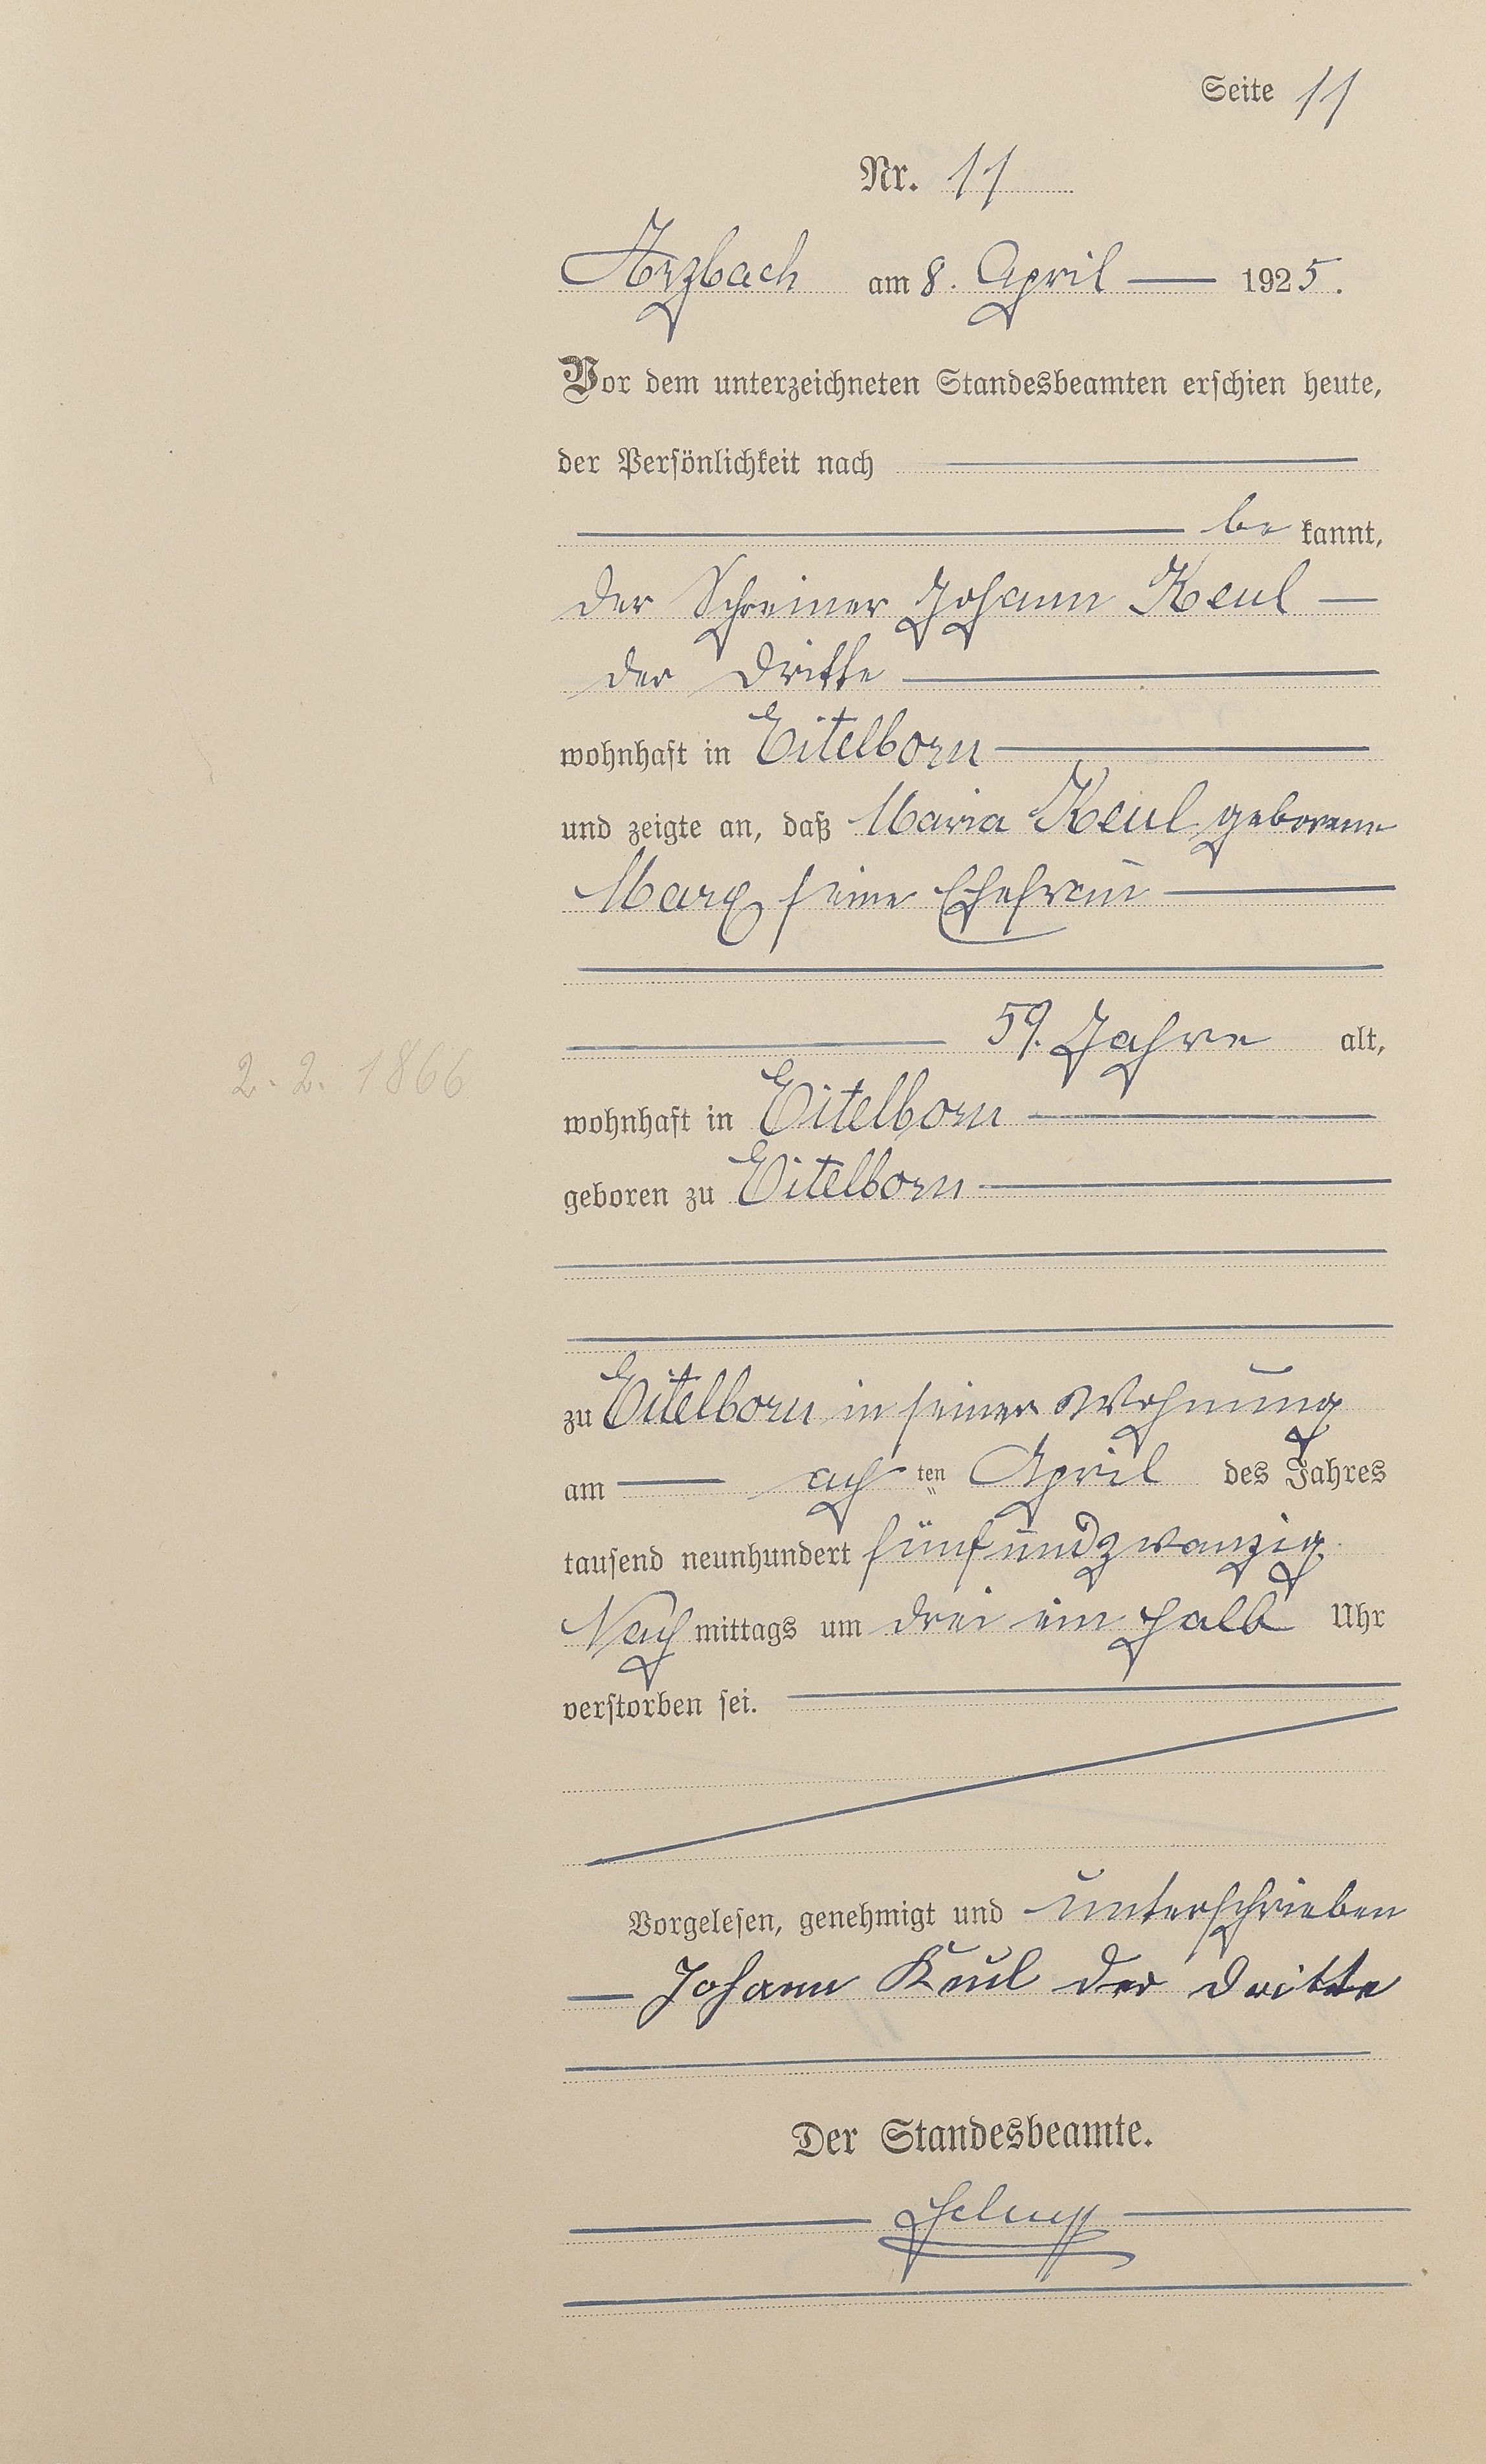 Seite 11
Nr. 11
Arzbach am 8. April — 1925.
Vor dem unterzeichneten Standesbeamten erschien heute,
der Persönlichkeit nach
be kannt,
der Schreiner Johann Keul —
der Dritte
wohnhaft in Eitelborn
und zeigte an, daß Maria Keul geborene
Marx seine Ehefrau
59. Jahre alt,
2. 2. 1866
wohnhaft in Eitelborn
geboren zu Eitelborn
zu Eitelborn in seiner Wohnung
am — ach ten April des Jahres
tausend neunhundert fünfundzwanzig
Nach mittags um drei ein halb Uhr
verstorben sei.
Vorgelesen, genehmigt und unterschrieben
— Johann Keul der Dritte
Der Standesbeamte.